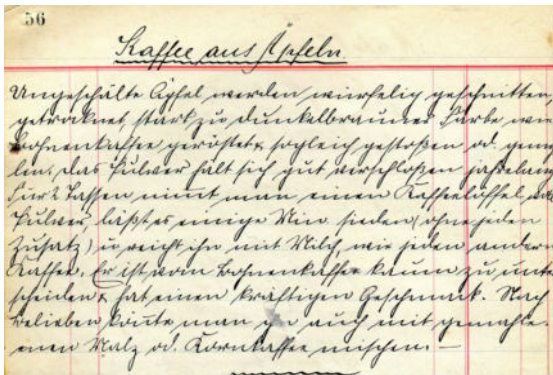 56
Kaffee aus Äpfeln.
Ungeschälte Äpfel werden würfelig geschnitten,
getrocknet, stark zu dunkelbrauner Farbe wie
Bohnenkaffee geröstet & sogleich gestoßen od. gemah
len. Das Pulver hält sich gut verschloßen jahrelang
Für 2 Tassen nimmt man einen Kaffeelöffel voll
Pulver, läßt es einige Min. sieden (ohne jeden
Zusatz) u. reicht ihn mit Milch wie jeden andern
Kaffee. Er ist vom Bohnenkaffee kaum zu unter
scheiden & hat einen kräftigen Geschmack. Nach
Belieben könnte man ihn auch mit gemahle-
nen Malz od. Kornkaffee mischen. —